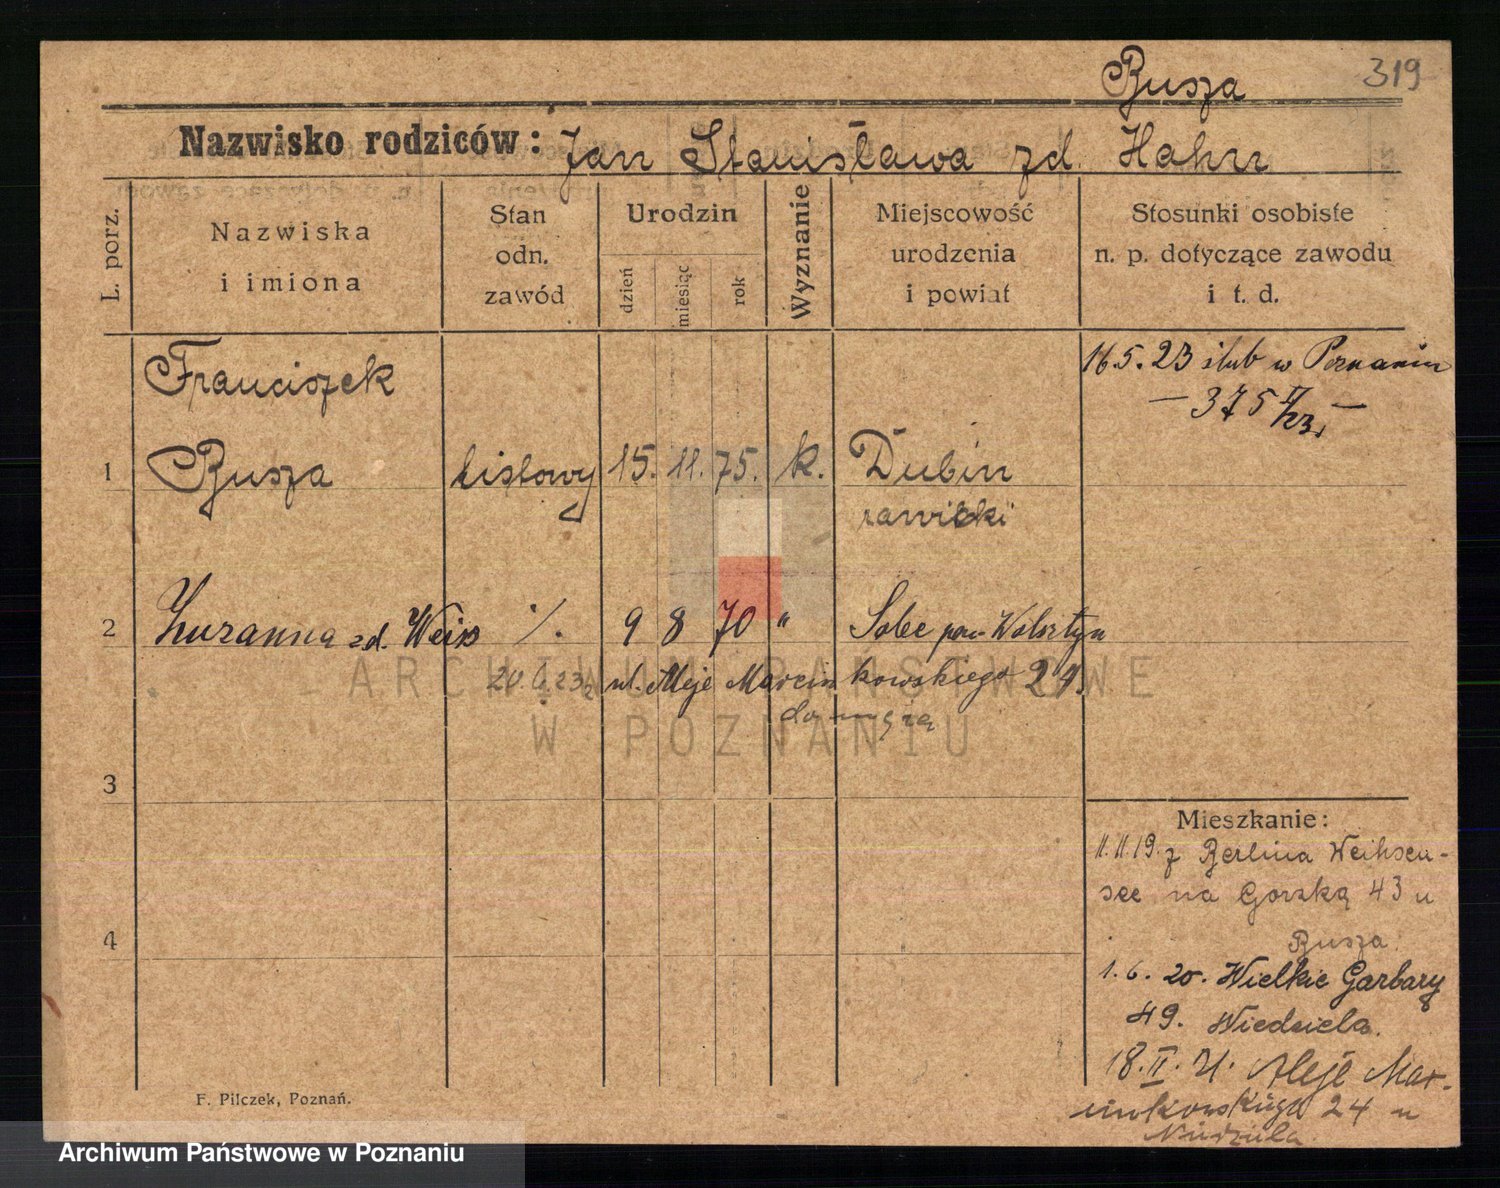 Busza 319
Nazwisko rodziców: Jan Stanisława zd. Hahn
L. porz.
Nazwiska
i imiona
Stan
odn.
zawód
Urodzin
dzień
miesiąc
rok
Wyznanie
Miejscowość
urodzenia
i powiat
Stosunki osobiste
n. p. dotyczące zawodu
i t. d.
Franciszek
16.5.23 ślub w Poznaniu
— 375 II/23. —
1 Busza listowy 15. 11. 75. k. Dubin
rawicki
2 Zuzanna zd. Weiss ./. 9 8 70 " pow Wolsztyn
20.6.23 ul. Aleje Marcinkowskiego 24.
do męża
ARCHIWUM PAŃSTWOWE
W POZNANIU
3
4
Mieszkanie:
11.11.19. z Berlina Weihsen-
see na Gorską 43 u
Busza.
1.6.20. Wielkie Garbary
49. Niedziela.
18.II.21. Aleje Mar-
cinkowskiego 24 u
Niedziela.
F. Pilczek, Poznań.
Archiwum Państwowe w Poznaniu